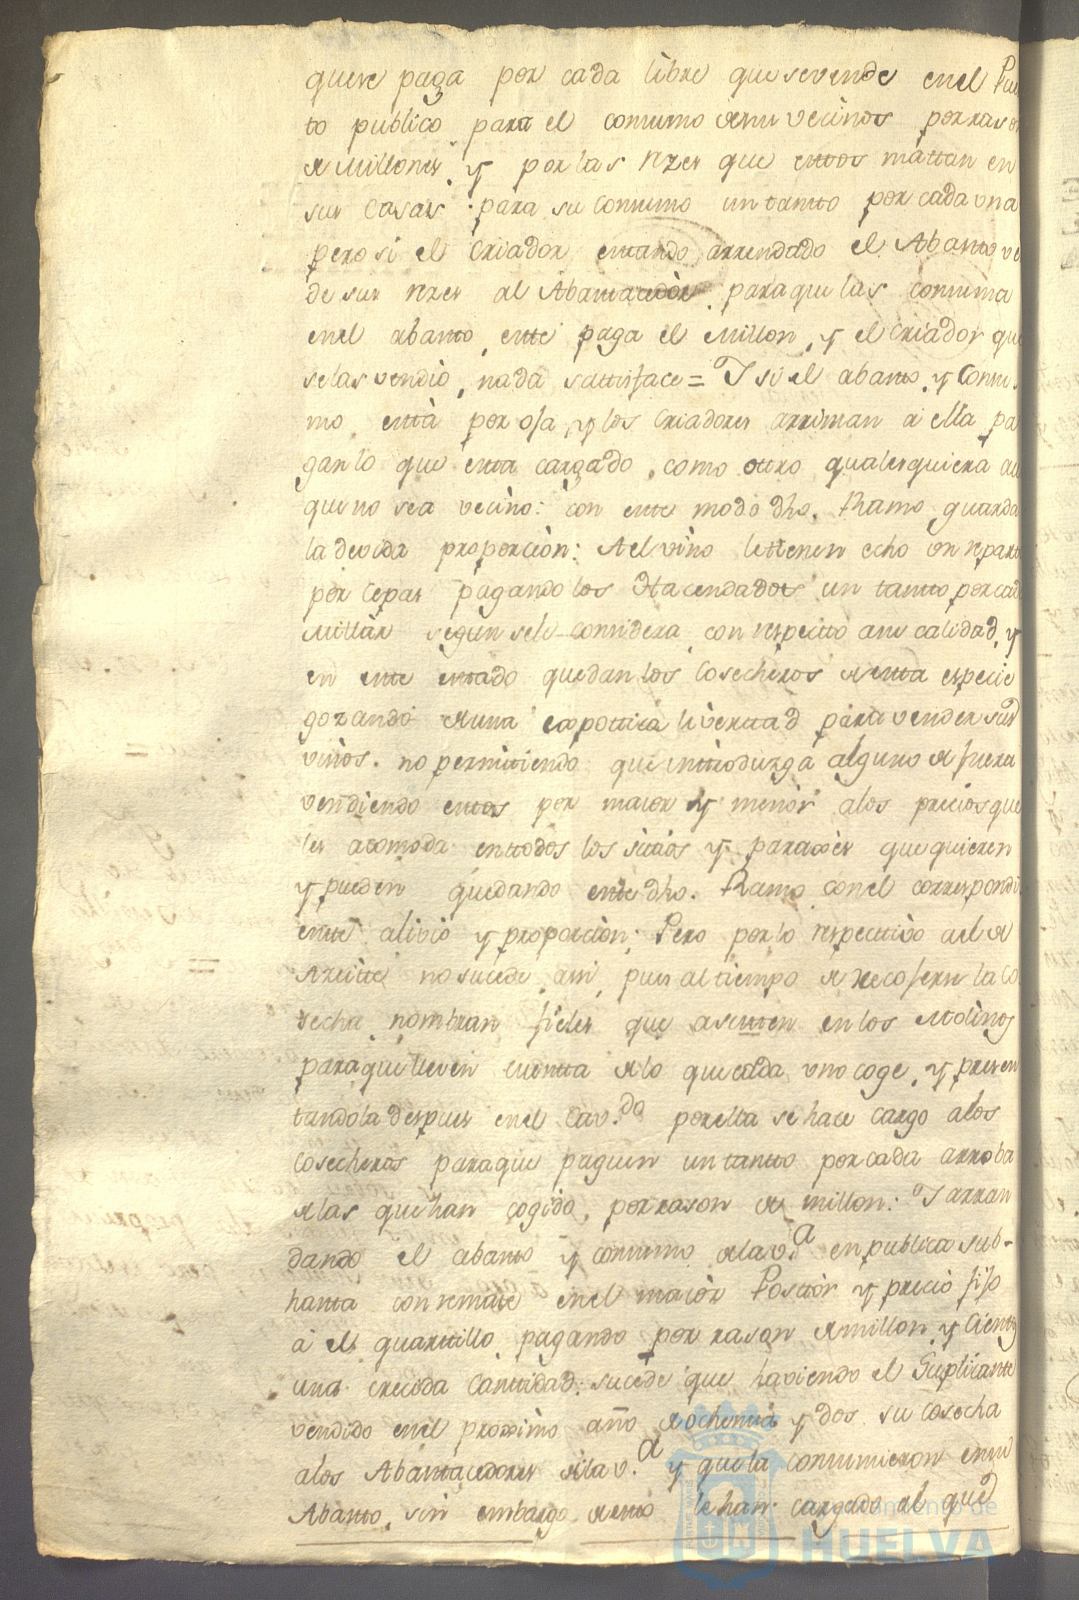 que se paga por cada libre que se vende en el Pues
to publico para el consumo de sus vecinos por rason
de Millones, y por las rezes que estos mattan en
sus Casas para su Consumo un tantto por cada una
pero si el Criador estando arrendado el Abasto ve
de sus rezes al Abastecedor para que las consuma
en el abasto, este paga el Millon, y el Criador que
se las vendiò, nada sattisface = Y si el abasto, y Consu
mo està por osa, y los Criadores arriman a ella pa
gan lo que esta cargado, como ottro qualesquiera au
que no sea vecino: con este modo dho. Ramo guarda
la devida proporciòn: Al vino le ttienen echo un repart
por Cepas pagando los Hacendados un tantto por cada
Millàr segun se le considera con respectto a su calidad, y
en este estado quedan los Cosecheros de esta especie
gozando de una livertad para vender sus
vinos. no permitiendo que inttroduzga alguno de fuera
vendiendo estos por maior y menor a los precios que
les acomoda en ttodos los sitios y paraxes que quieren
y pueden quedando este dho. Ramo con el correspondi
ente alivio y proporciòn: Pero por lo respectivo a el de
Azeitte no sucede asi, pues al tiempo de recojerse la Co
secha nombran fieles que asisten en los Molinos
para que lleven cuentta de lo que cada uno coge, y presen
tandola despues en el Cav.do por ella se hace cargo a los
Cosecheros para que paguen un tantto por cada arroba
de las que han cogido, por rason de millon: Y arran
dando el abasto y consumo de la v.a en publica sub-
hasta con remate en el maiòr Posttòr y precio fijo
à el quarttillo pagando por rason de millon y Cientos
una crecida Canttidad: sucede que haviendo el Suplicante
vendido en el proximo año de ochenta y dos su Cosecha
a los Abastecedores de la v.a y que la consumieron en su
Abasto, sin embargo de esto le han cargado al que
Ayuntamiento de
HUELVA